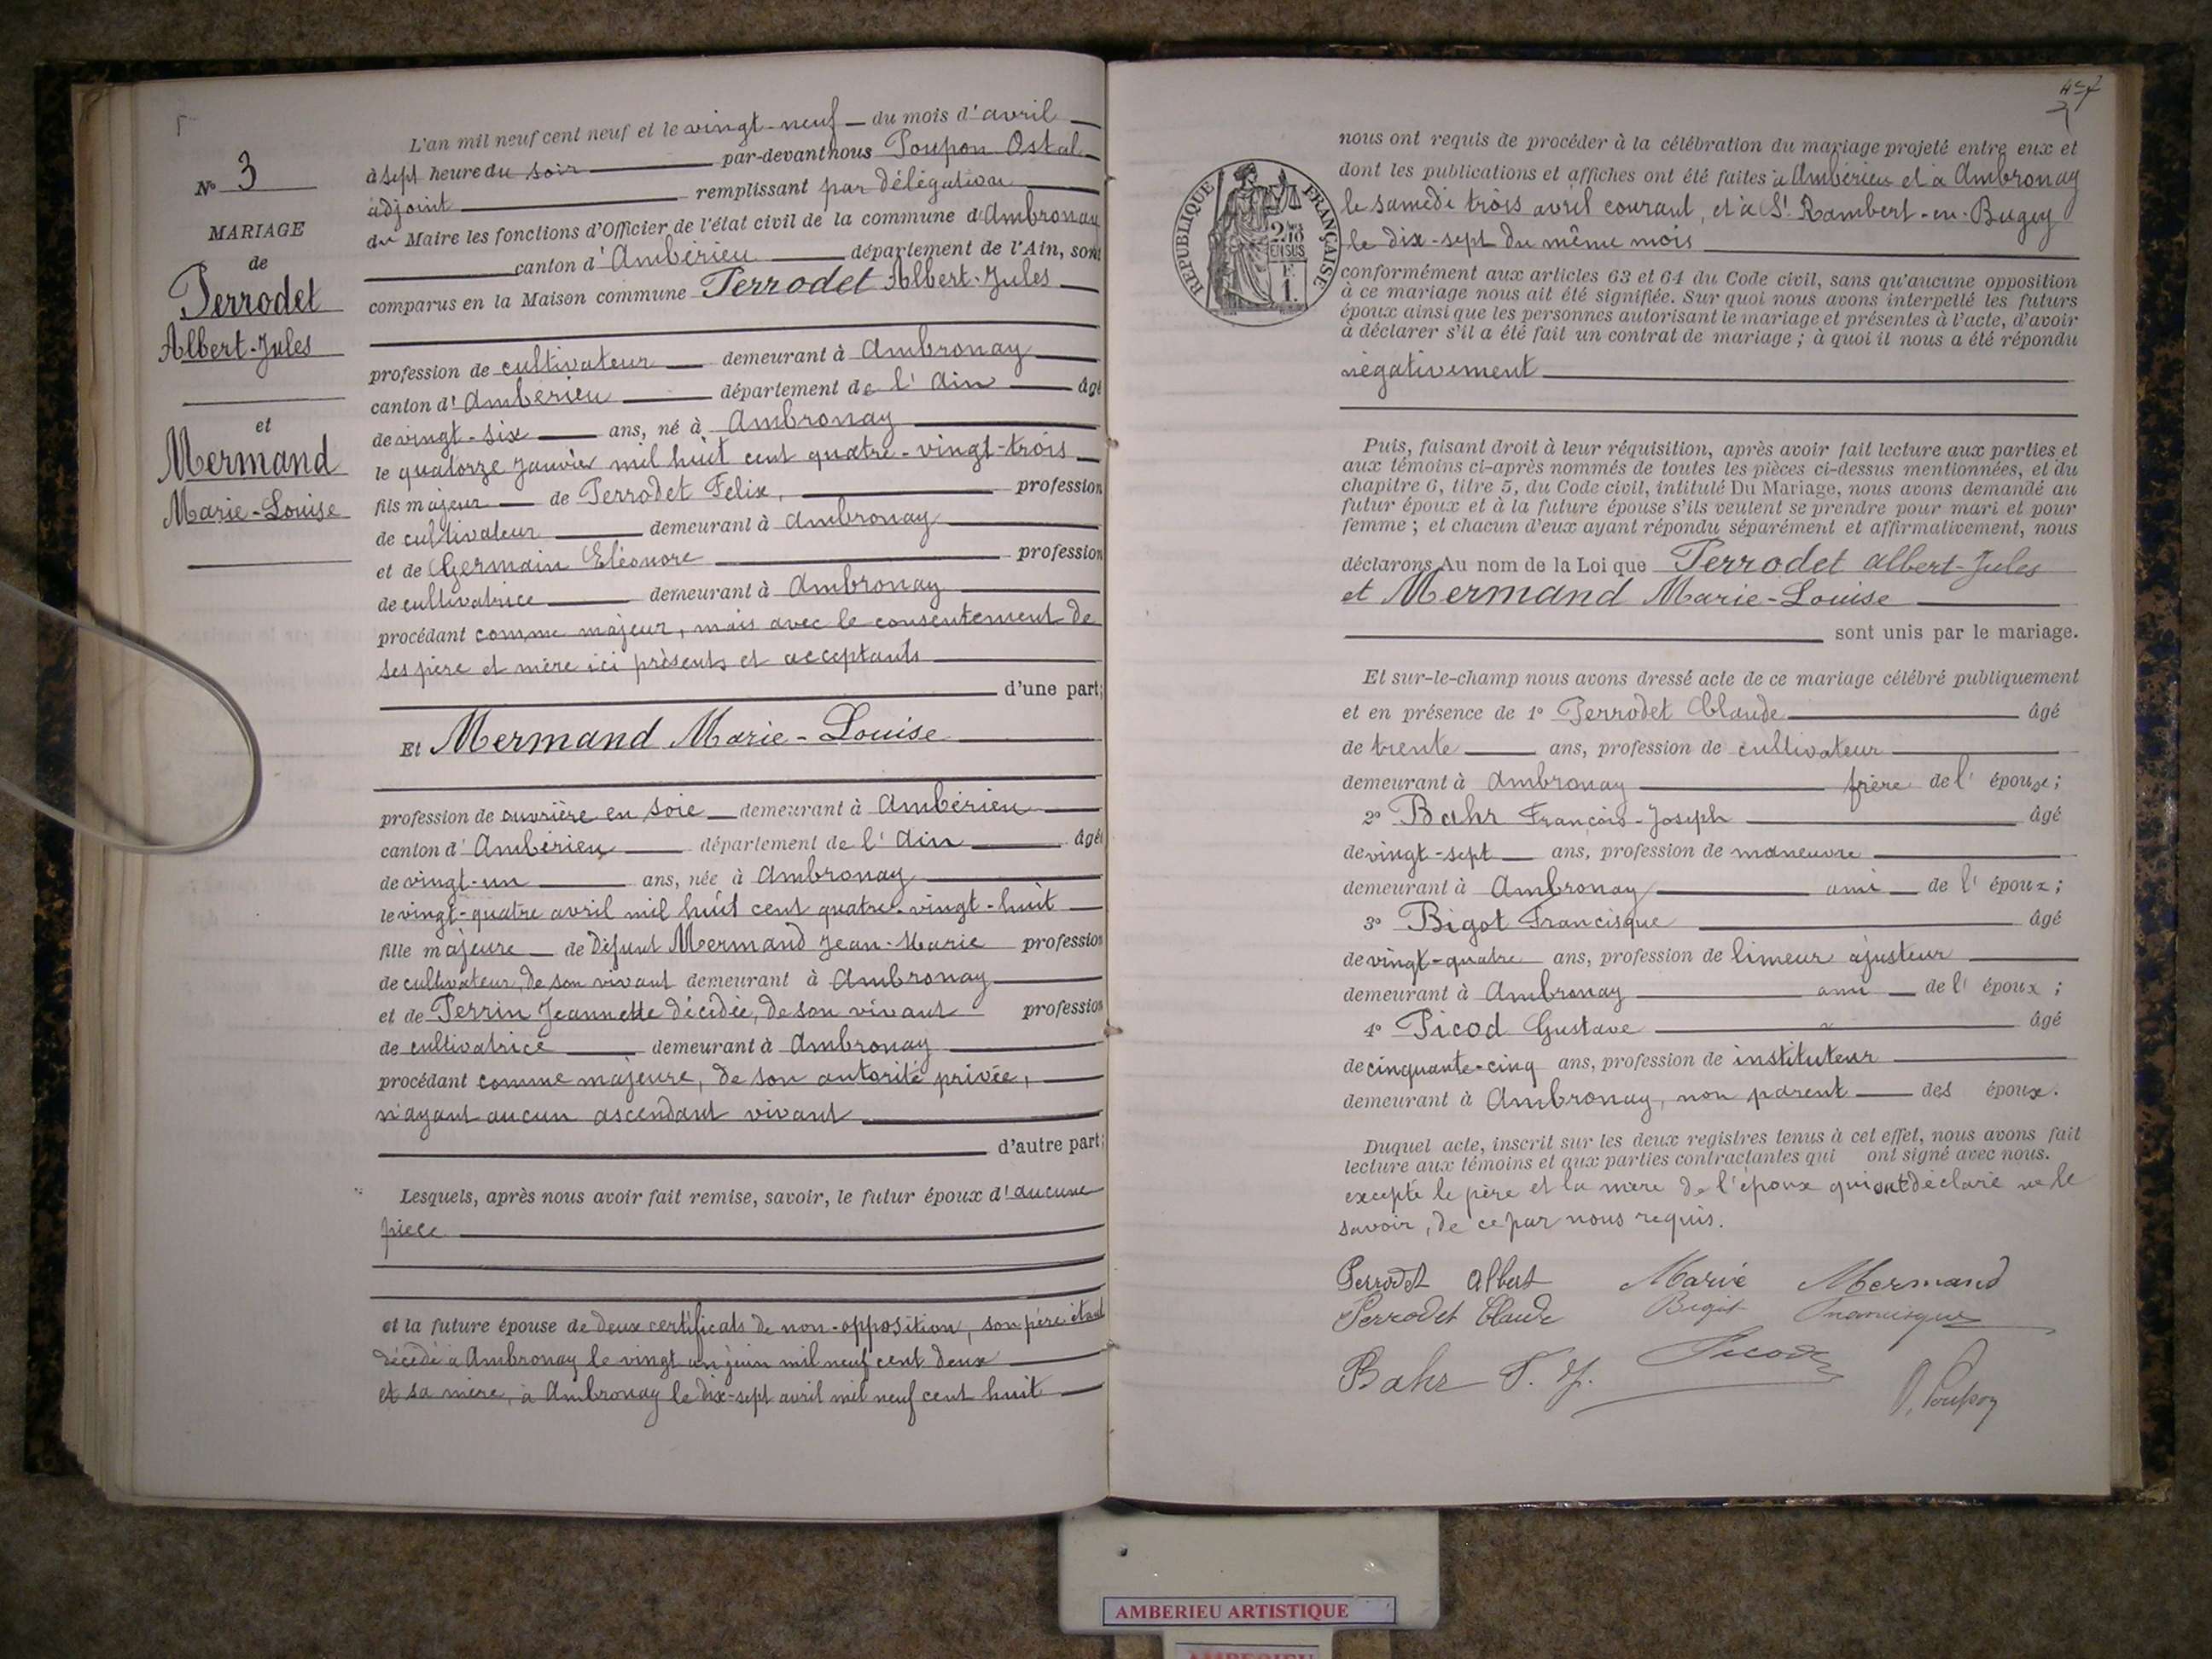 N° 3
MARIAGE
de
Perrodet
Albert-Jules
et
Mermand
Marie-Louise
L'an mil neuf cent neuf et le vingt-neuf du mois d'avril
à sept heure du soir par-devant nous Poupon Ostal
adjoint remplissant par délégation
du Maire les fonctions d'Officier de l'état civil de la commune d'Ambronay
canton d'Ambérieu département de l'Ain, sont
comparus en la Maison commune Perrodet Albert-Jules
profession de cultivateur demeurant à Ambronay
canton d'Ambérieu département de l'Ain âgé
de vingt-six ans, né à Ambronay
le quatorze Janvier mil huit cent quatre-vingt-trois
fils majeur de Perrodet Felix, profession
de cultivateur demeurant à Ambronay
et de Germain Eléonore profession
de cultivatrice demeurant à Ambronay
procédant comme majeur, mais avec le consentement de
ses père et mère ici présents et acceptants
d'une part;
Et Mermand Marie-Louise
profession de ouvrière en soie demeurant à Ambérieu
canton d'Ambérieu département de l'Ain âgée
de vingt-un ans, née à Ambronay
le vingt-quatre avril mil huit cent quatre-vingt-huit
fille majeure de défunt Mermand Jean-Marie profession
de cultivateur, de son vivant demeurant à Ambronay
et de Perrin Jeannette décédée, de son vivant profession
de cultivatrice demeurant à Ambronay
procédant comme majeure, de son autorité privée,
n'ayant aucun ascendant vivant
d'autre part;
Lesquels, après nous avoir fait remise, savoir, le futur époux d'aucune
pièce
et la future épouse de deux certificats de non-opposition, son père étant
décédé à Ambronay le vingt un juin mil neuf cent deux
et sa mère, à Ambronay le dix-sept avril mil neuf cent huit
RÉPUBLIQUE FRANÇAISE
2/10 EN SUS
F. 1.
nous ont requis de procéder à la célébration du mariage projeté entre eux et
dont les publications et affiches ont été faites à Ambérieu et à Ambronay
le samedi trois avril courant, et à St Rambert-en-Bugey
le dix-sept du même mois
conformément aux articles 63 et 64 du Code civil, sans qu'aucune opposition
à ce mariage nous ait été signifiée. Sur quoi nous avons interpellé les futurs
époux ainsi que les personnes autorisant le mariage et présentes à l'acte, d'avoir
à déclarer s'il a été fait un contrat de mariage ; à quoi il nous a été répondu
négativement
Puis, faisant droit à leur réquisition, après avoir fait lecture aux parties et
aux témoins ci-après nommés de toutes les pièces ci-dessus mentionnées, et du
chapitre 6, titre 5, du Code civil, intitulé Du Mariage, nous avons demandé au
futur époux et à la future épouse s'ils veulent se prendre pour mari et pour
femme ; et chacun d'eux ayant répondu séparément et affirmativement, nous
déclarons Au nom de la Loi que Perrodet albert-Jules
et Mermand Marie-Louise
sont unis par le mariage.
Et sur-le-champ nous avons dressé acte de ce mariage célébré publiquement
et en présence de 1° Perrodet Claude âgé
de trente ans, profession de cultivateur
demeurant à Ambronay frère de l'époux;
2° Bahr François-Joseph âgé
de vingt-sept ans, profession de maneuvre
demeurant à Ambronay ami de l'époux;
3° Bigot Francisque âgé
de vingt-quatre ans, profession de limeur ajusteur
demeurant à Ambronay ami de l'époux;
4° Picod Gustave âgé
de cinquante-cinq ans, profession de instituteur
demeurant à Ambronay, non parent des époux.
Duquel acte, inscrit sur les deux registres tenus à cet effet, nous avons fait
lecture aux témoins et aux parties contractantes qui ont signé avec nous.
excepté le père et la mère de l'époux qui ont déclaré ne le
savoir, de ce par nous requis.
Perrodet Albert Marie Mermand
Perrodet Claude Bigot Francisque
Bahr F. J. Picod O. Poupon
AMBERIEU ARTISTIQUE
AMBERIEU